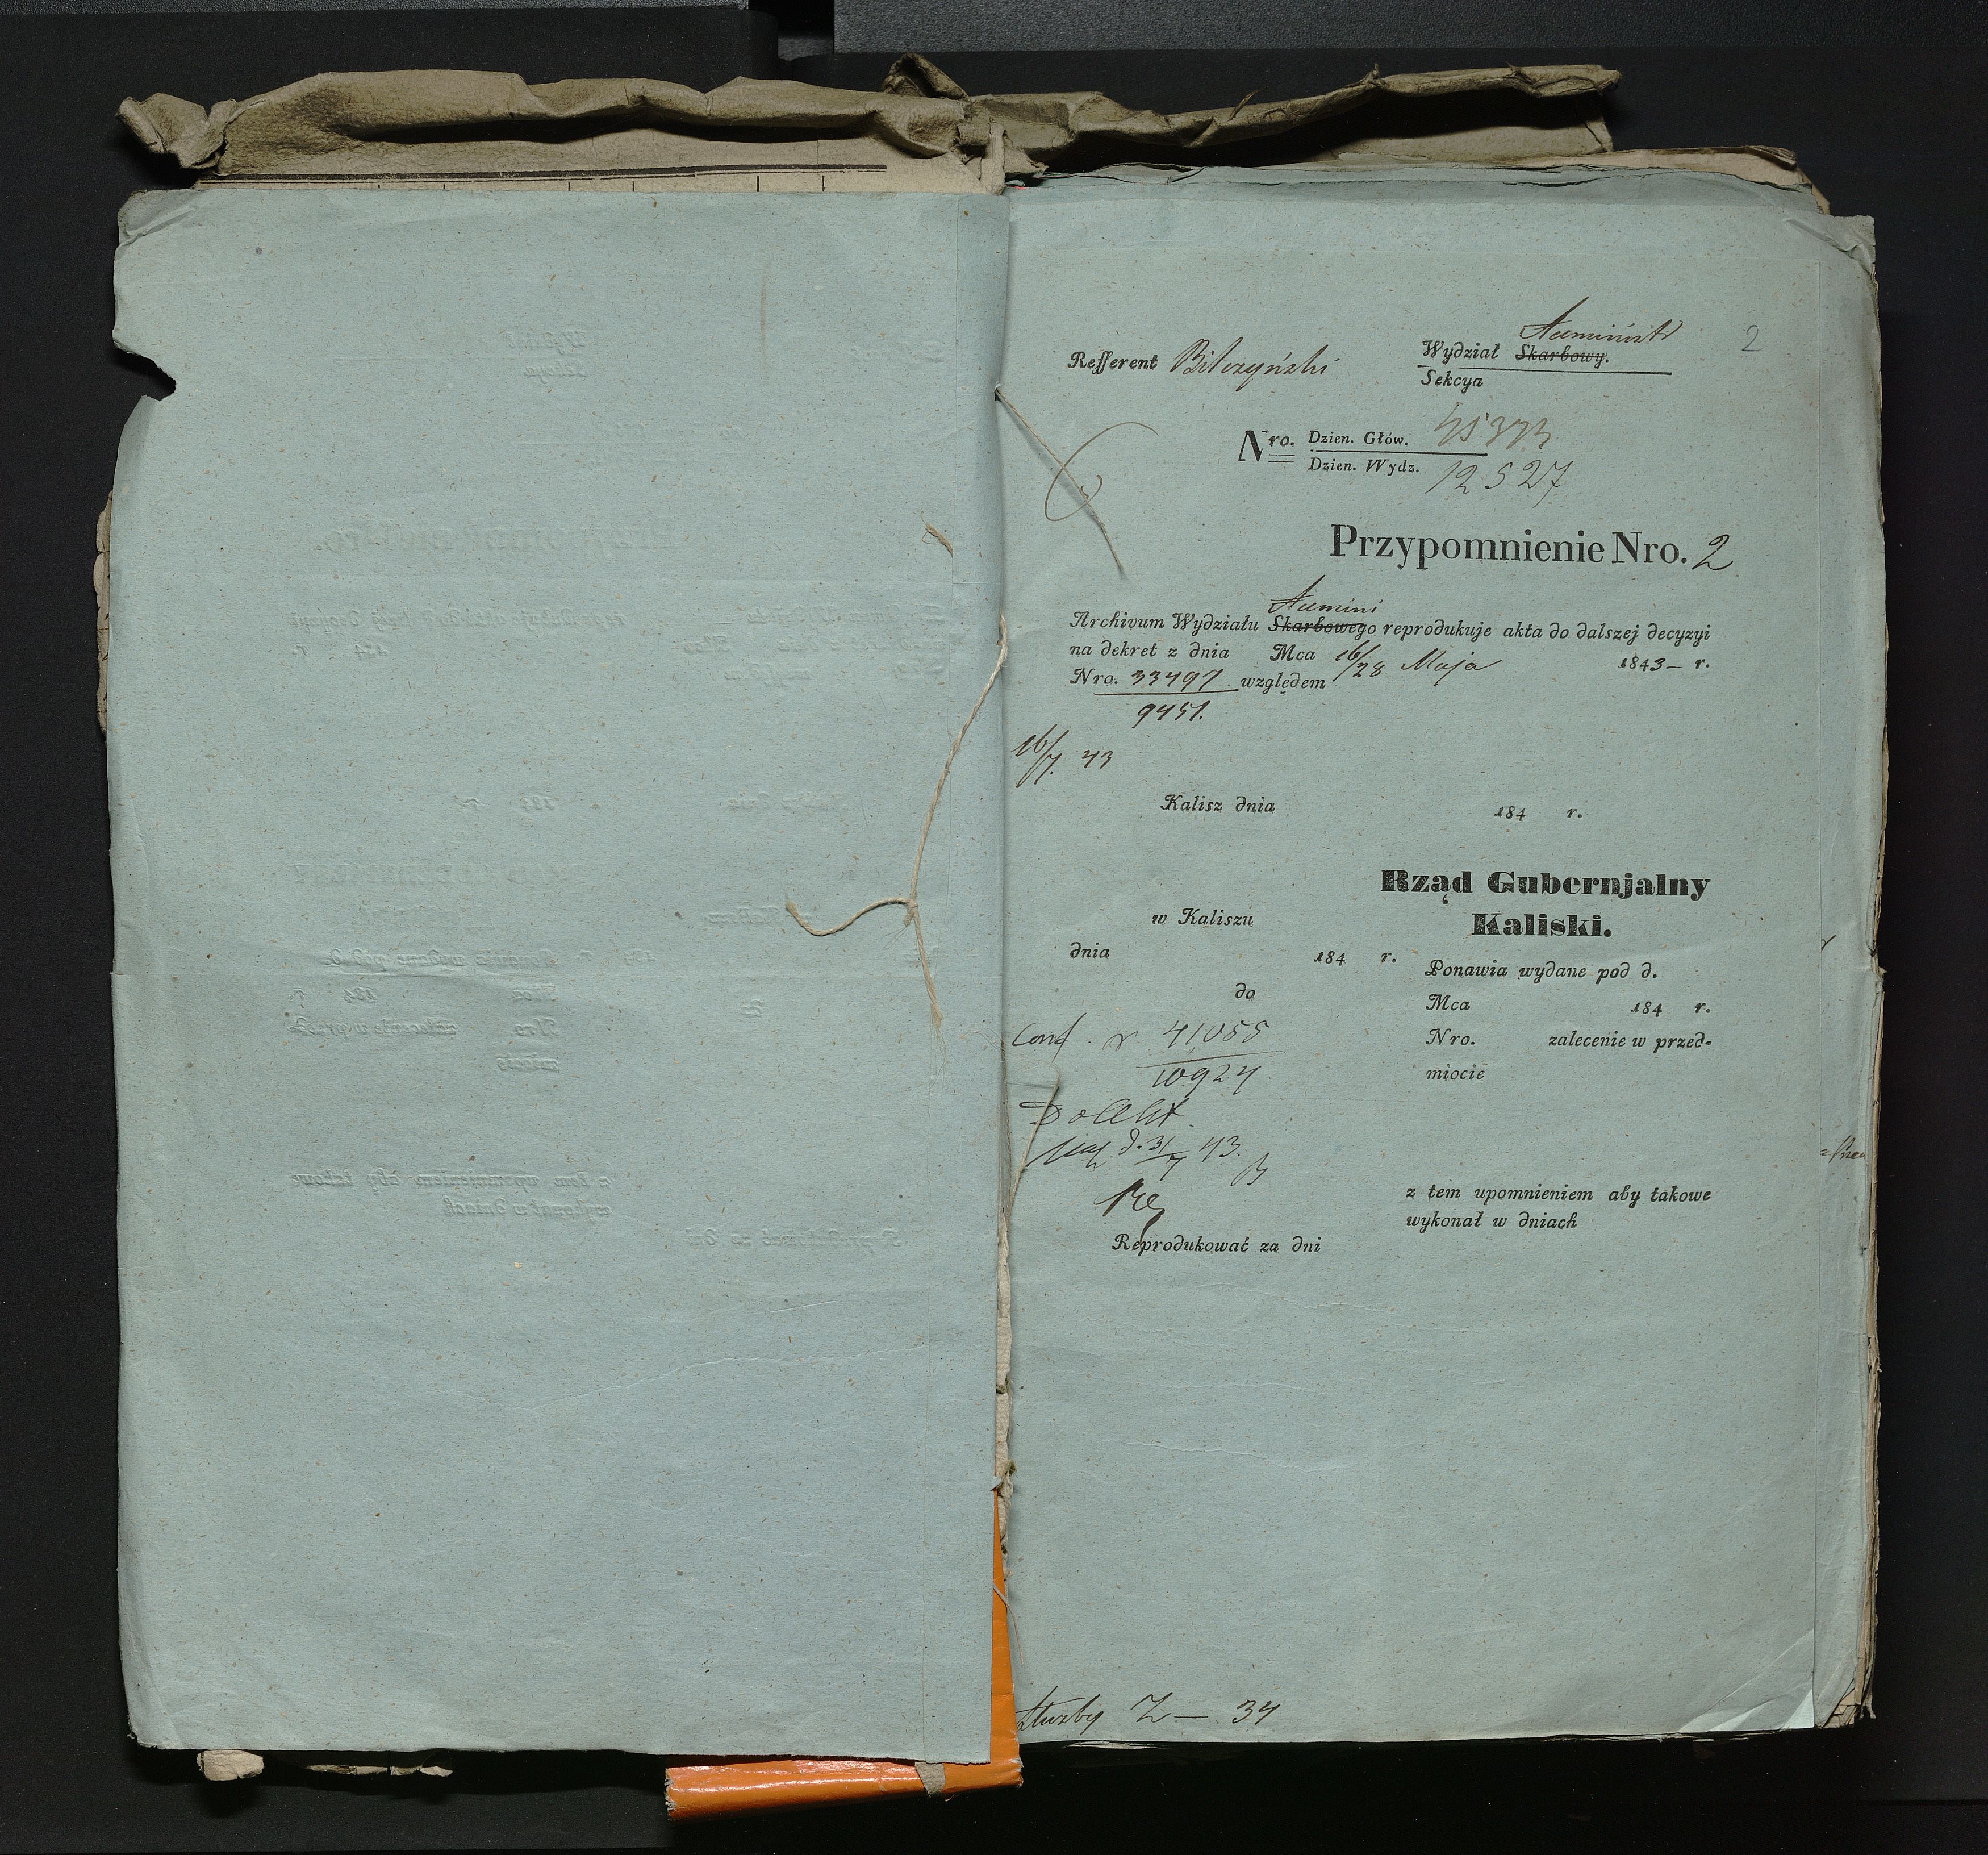 2
Administr
Refferent Bilczyński Wydział Skarbowy.
Sekcya
Nro. Dzien. Głów. 45373
Dzien. Wydz. 12527
Przypomnienie Nro. 2
Admini
Archivum Wydziału Skarbowego reprodukuje akta do dalszej decyzyi
na dekret z dnia Mca 16/28 Maja 1843 – r.
Nro. 33497 względem
9451.
16/7. 43
Kalisz dnia 184 r.
Rząd Gubernjalny
Kaliski.
w Kaliszu
dnia 184 r.
Ponawia wydane pod d.
do
Mca 184 r.
Nro. zalecenie w przed-
miocie
41055
10924
d. 31/7 43.
z tem upomnieniem aby takowe
wykonał w dniach
Reprodukować za dni
Służby Z — 34